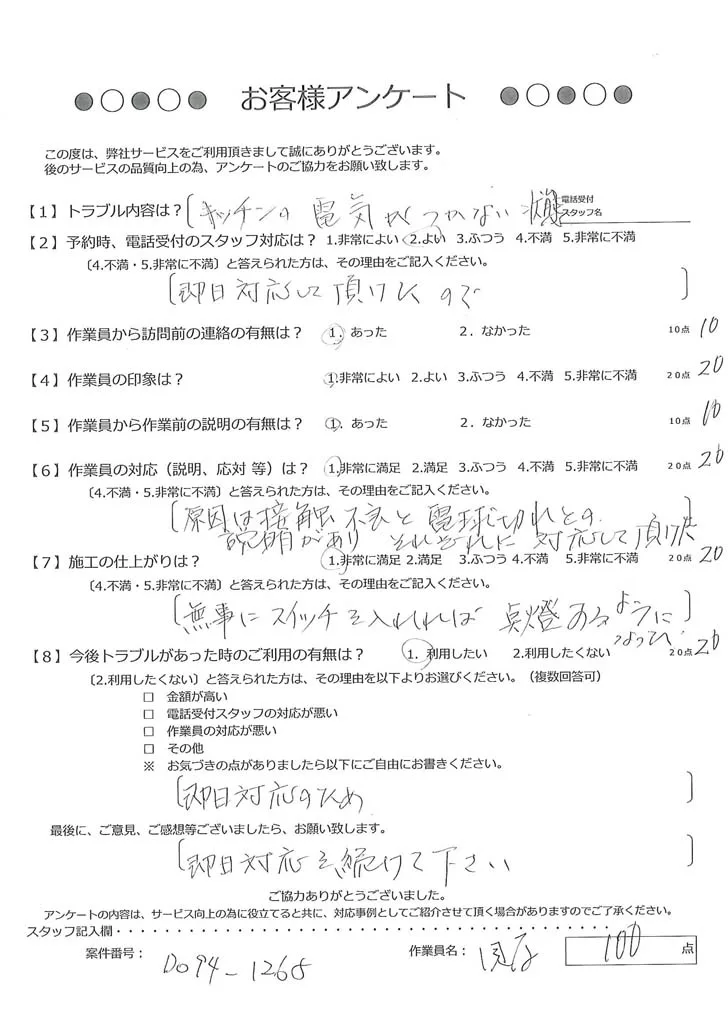 ●○●○● お客様アンケート ●○●○●
この度は、弊社サービスをご利用頂きまして誠にありがとうございます。
後のサービスの品質向上の為、アンケートのご協力をお願い致します。
【1】トラブル内容は？〔キッチンの電気がつかない状態 電話受付
スタッフ名
【2】予約時、電話受付のスタッフ対応は？ 1.非常によい 2.よい 3.ふつう 4.不満 5.非常に不満
〔4.不満・5.非常に不満〕と答えられた方は、その理由をご記入ください。
〔即日対応して頂けたので〕
【3】作業員から訪問前の連絡の有無は？ 1. あった 2. なかった 10点 10
【4】作業員の印象は？ 1.非常によい 2.よい 3.ふつう 4.不満 5.非常に不満 20点 20
【5】作業員から作業前の説明の有無は？ 1. あった 2. なかった 10点 10
【6】作業員の対応（説明、応対 等）は？ 1.非常に満足 2.満足 3.ふつう 4.不満 5.非常に不満 20点 20
〔4.不満・5.非常に不満〕と答えられた方は、その理由をご記入ください。
〔原因は接触不良と電球切れとの
説明があり それぞれに対応して頂けた
【7】施工の仕上がりは？ 1.非常に満足 2.満足 3.ふつう 4.不満 5.非常に不満 20点 20
〔4.不満・5.非常に不満〕と答えられた方は、その理由をご記入ください。
〔無事にスイッチを入れれば 点燈あるように
なってい
【8】今後トラブルがあった時のご利用の有無は？ 1. 利用したい 2.利用したくない 20点 20
〔2.利用したくない〕と答えられた方は、その理由を以下よりお選びください。（複数回答可）
□ 金額が高い
□ 電話受付スタッフの対応が悪い
□ 作業員の対応が悪い
□ その他
※ お気づきの点がありましたら以下にご自由にお書きください。
〔即日対応のため〕
最後に、ご意見、ご感想等ございましたら、お願い致します。
〔即日対応を続けて下さい〕
ご協力ありがとうございました。
アンケートの内容は、サービス向上の為に役立てると共に、対応事例としてご紹介させて頂く場合がありますのでご了承ください。
スタッフ記入欄・・・・・・・・・・・・・・・・・・・・・・・・・・・・・・・・・・・・・・・・
案件番号： D094-1268 作業員名： 100 点